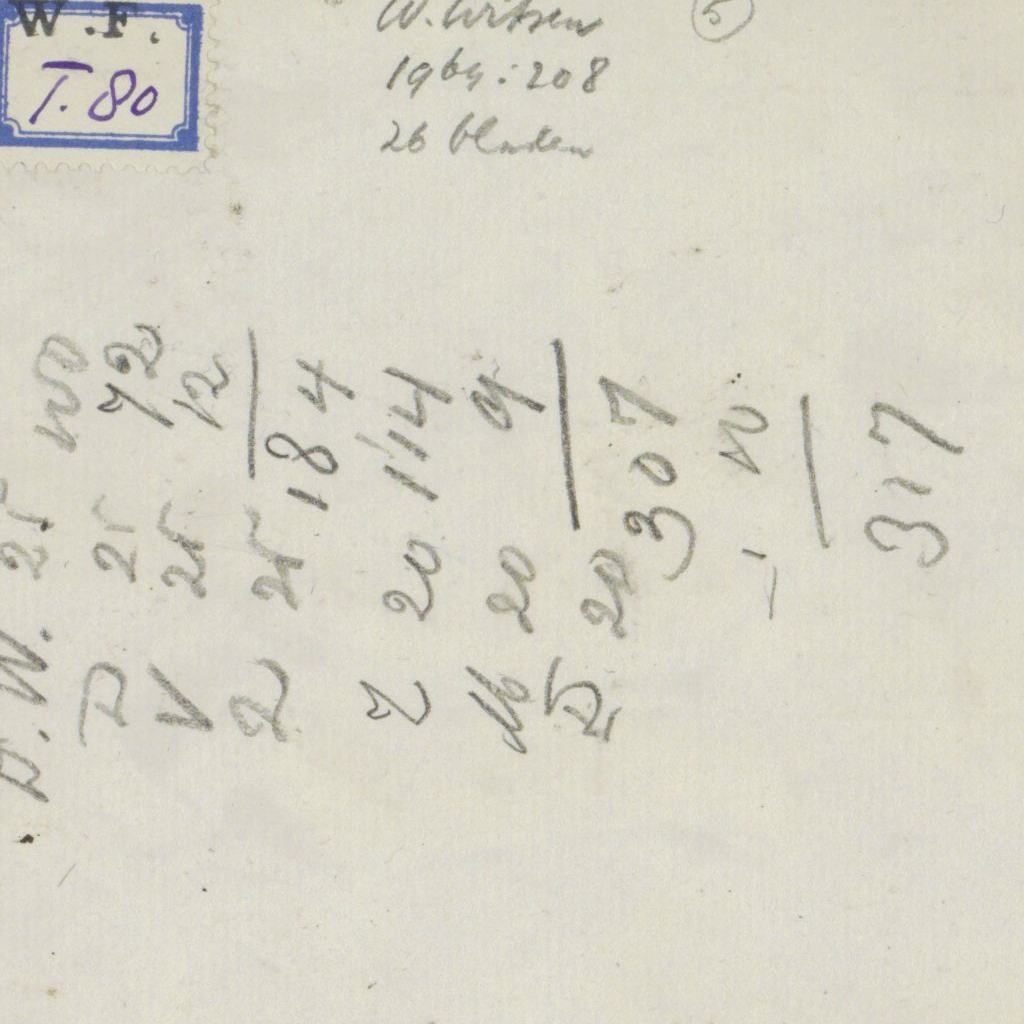 W.F.
T. 80
W. Witsen
5
1969:208
26 bladen
P.W. 25 100
D 25 72
V 25 12
Z 25 184
Z 20 114
M 20 9
D 20 307
10
317